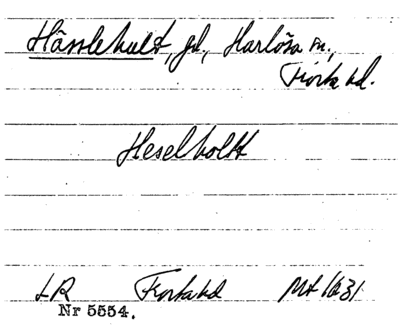 Hässlehult, gd., Harlösa sn.,
Frosta hd.
Heselholtt
LR Frosta hd Mt 1631
Nr 5554.